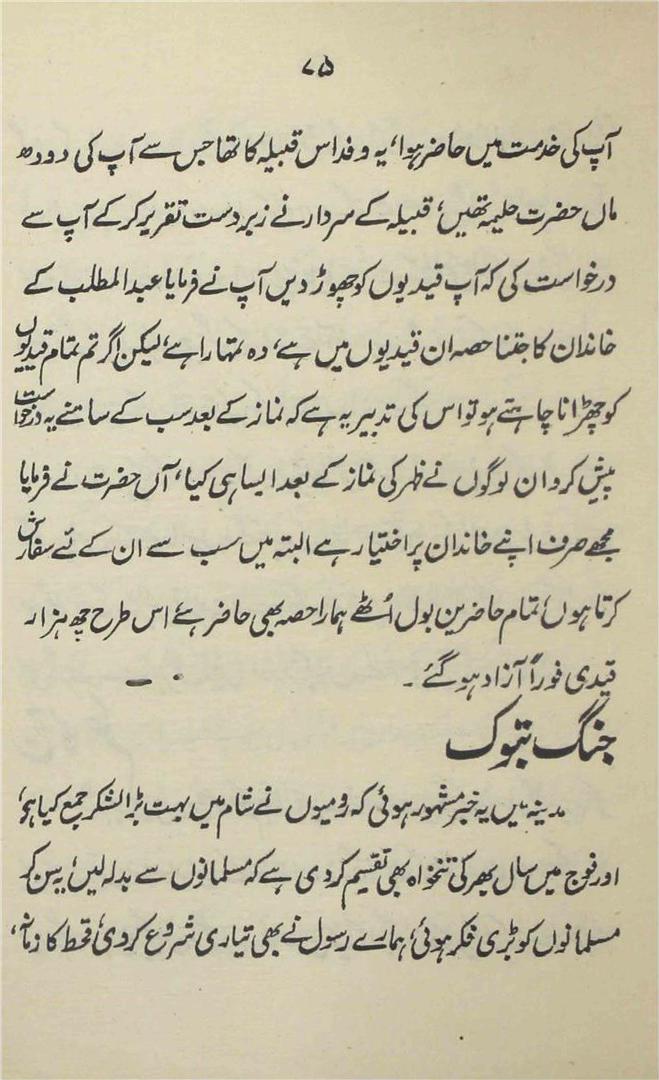 ۷۵
آپ کی خدمت میں حاضر ہوا، یہ وفد اس قبیلہ کا تھا جس سے آپ کی دودھ
ماں حضرت حلیمہ تھیں، قبیلہ کے سردار نے زبردست تقریر کر کے آپ سے
درخواست کی کہ آپ قیدیوں کو چھوڑ دیں آپ نے فرمایا عبدالمطلب کے
خاندان کا جتنا حصہ ان قیدیوں میں ہے، وہ تمہارا ہے، لیکن اگر تم تمام قیدیوں
کو چھڑانا چاہتے ہو تو اس کی تدبیر یہ ہے کہ نماز کے بعد سب کے سامنے یہ درخواست
پیش کرو ان لوگوں نے ظہر کی نماز کے بعد ایسا ہی کیا، آں حضرت نے فرمایا
مجھے صرف اپنے خاندان پر اختیار ہے البتہ میں سب سے ان کے لئے سفارش
کرتا ہوں، تمام حاضرین بول اُٹھے ہمارا حصہ بھی حاضر ہے اس طرح چھ ہزار
قیدی فوراً آزاد ہو گئے ۔
جنگ تبوک
مدینہ میں یہ خبر مشہور ہوئی کہ رومیوں نے شام میں بہت بڑا لشکر جمع کیا ہے،
اور فوج میں سال بھر کی تنخواہ بھی تقسیم کر دی ہے کہ مسلمانوں سے بدلہ لیں، یہ سن کر
مسلمانوں کو بڑی فکر ہوئی، ہمارے رسول نے بھی تیاری شروع کر دی، قحط کا زمانہ،